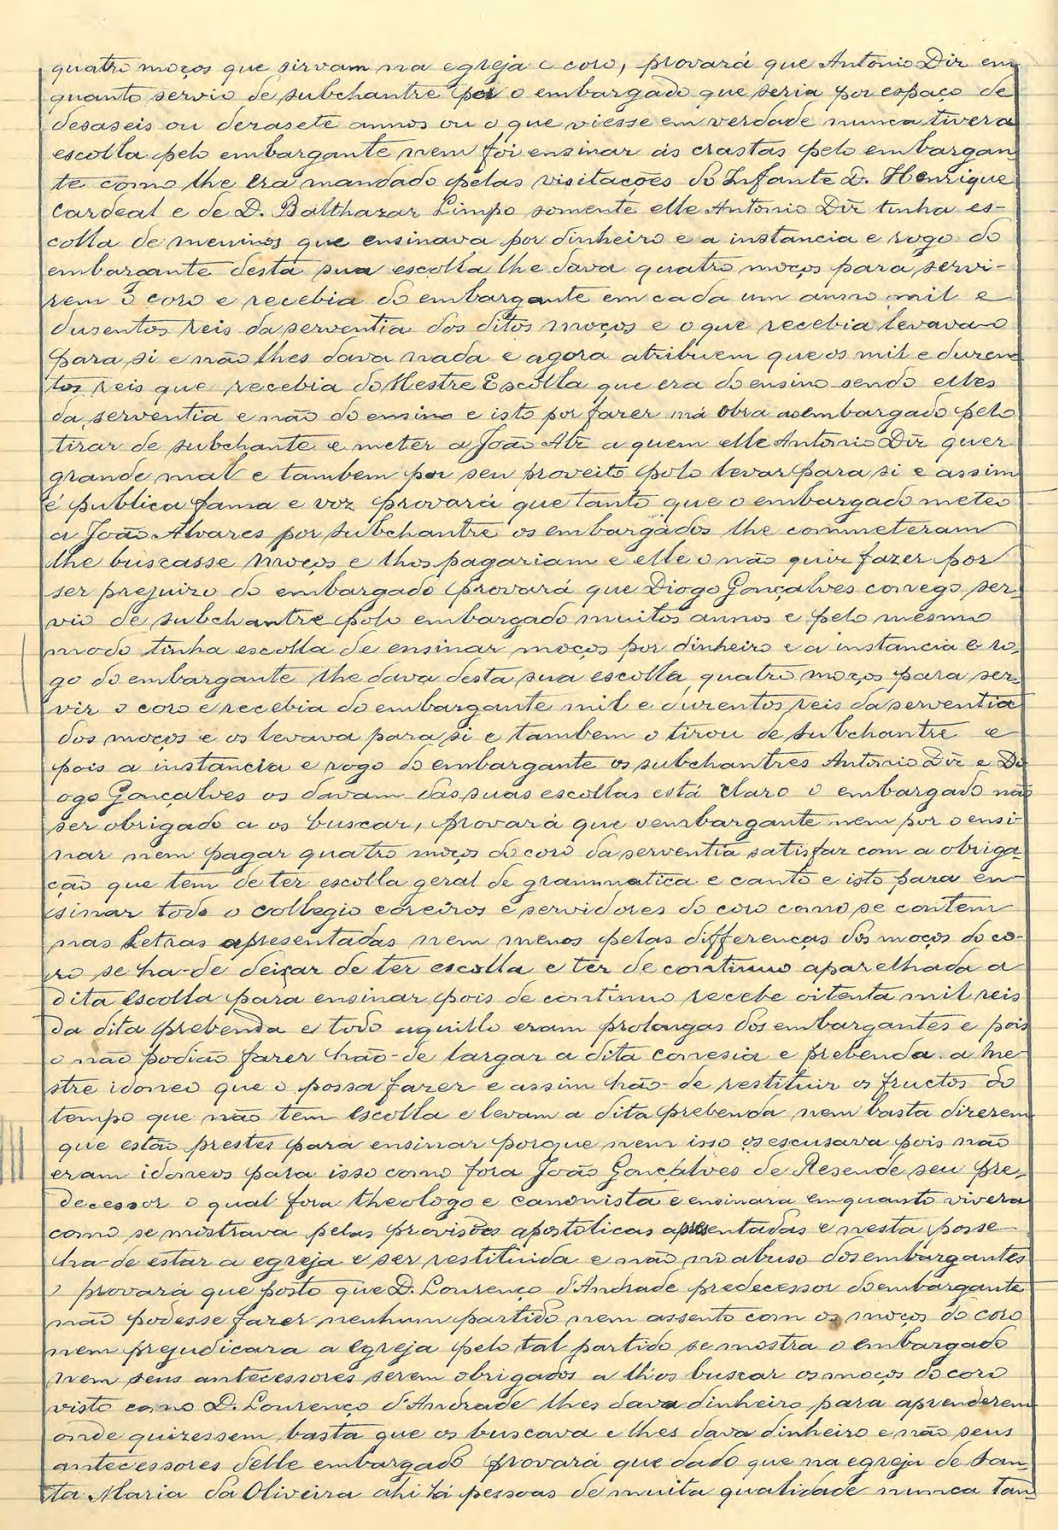 quatro moços que sirvam na egreja e coro, provará que Antonio Diz em
quanto servio de subchantre por o embargado que seria por espaço de
desaseis ou derasete annos ou o que viesse em verdade nunca tivera
escolla pelo embargante nem foi ensinar ás crastas pelo embargan
te como lhe era mandado pelas visitações do Infante D. Henrique
Cardeal e de D. Balthazar Limpo somente elle Antonio Diz tinha es-
colla de meninos que ensinava por dinheiro e a instancia e rogo do
embargante desta sua escolla lhe dava quatro moços para servi-
rem o coro e recebia do embargante em cada um anno mil e
dusentos reis da serventia dos ditos moços e o que recebia levava-o
para si e não lhes dava nada e agora atribuem que os mil e duzen
tos reis que recebia do Mestre Escolla que era do ensino sendo elles
da serventia e não do ensino e isto por fazer má obra ao embargado pelo
tirar de subchante e meter a João Alz a quem elle Antonio Diz quer
grande mal e tambem por seu proveito polo levar para si e assim
é publica fama e voz provará que tanto que o embargado meteo
a João Alvares por subchantre os embargados lhe commeteram
lhe buscasse moços e lhos pagariam e elle o não quiz fazer por
ser prejuizo do embargado provará que Diogo Gonçalves conego ser-
vio de subchantre polo embargado muitos annos e pelo mesmo
modo tinha escolla de ensinar moços por dinheiro e a instancia e ro-
go do embargante lhe dava desta sua escolla quatro moços para ser-
vir o coro e recebia do embargante mil e duzentos reis da serventia
dos moços e os levava para si e tambem o tirou de subchantre e
pois a instancia e rogo do embargante os subchantres Antonio Diz e Di
ogo Gonçalves os davam das suas escollas está claro o embargado não
ser obrigado a os buscar, provará que o embargante nem por o ensi
nar nem pagar quatro moços do coro da serventia satisfaz com a obriga-
ção que tem de ter escolla geral de grammatica e canto e isto para en-
sinar todo o collegio coreiros e servidores do coro como se contem
nas letras apresentadas nem menos pelas differenças dos moços do co-
ro se ha-de deixar de ter escolla e ter de continuo aparelhada a
dita escolla para ensinar pois de continuo recebe oitenta mil reis
da dita prebenda e todo aquillo eram prolongas dos embargantes e pois
o não podião fazer hão-de largar a dita conesia e prebenda a me
stre idoneo que o possa fazer e assim hão-de restituir os fructos do
tempo que não tem escolla e levam a dita prebenda nem basta dizerem
que estão prestes para ensinar porque nem isso os escusava pois não
eram idoneos para isso como fora João Gonçalves de Resende seu pre-
decessor o qual fora theologo e canonista e ensinara em quanto vivera
como se mostrava pelas provisões apostolicas apresentadas e nesta posse
ha-de estar a egreja e ser restituida e não no abuso dos embargantes
provará que posto que D. Lourenço d'Andrade predecessor do embargante
não podesse fazer nenhum partido nem assento com os moços do coro
nem prejudicara a egreja pelo tal partido se mostra o embargado
nem seus antecessores serem obrigados a lhos buscar os moços do coro
visto como D. Lourenço d'Andrade lhes dava dinheiro para aprenderem
onde quizessem basta que os buscava e lhes dava dinheiro e não seus
antecessores delle embargado provará que dado que na egreja de San
ta Maria da Oliveira ahi há pessoas de muita qualidade nunca tan